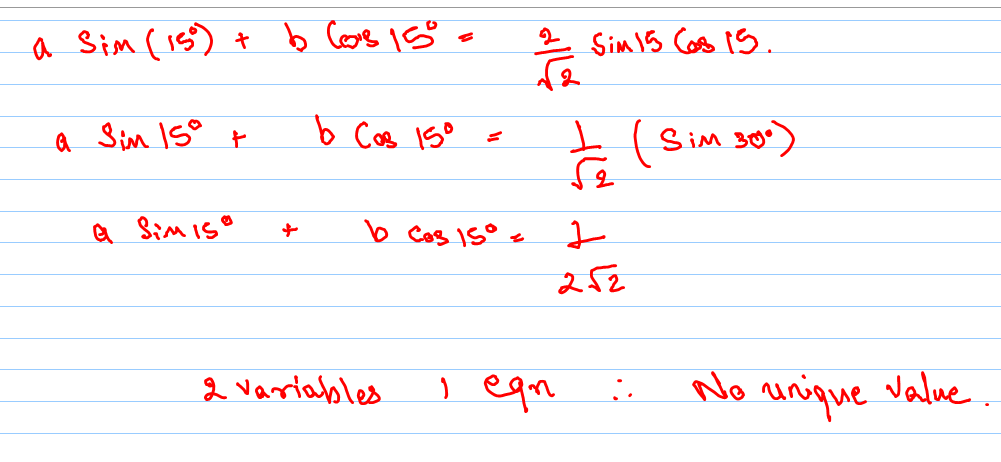 a Sin(15°) + b Cos 15° = 2/√2 Sin15 Cos 15.
a Sin 15° + b Cos 15° = 1/√2 (Sin 30°)
a Sin 15° + b Cos 15° = 1/2√2
2 variables 1 eqn ∴ No unique value.